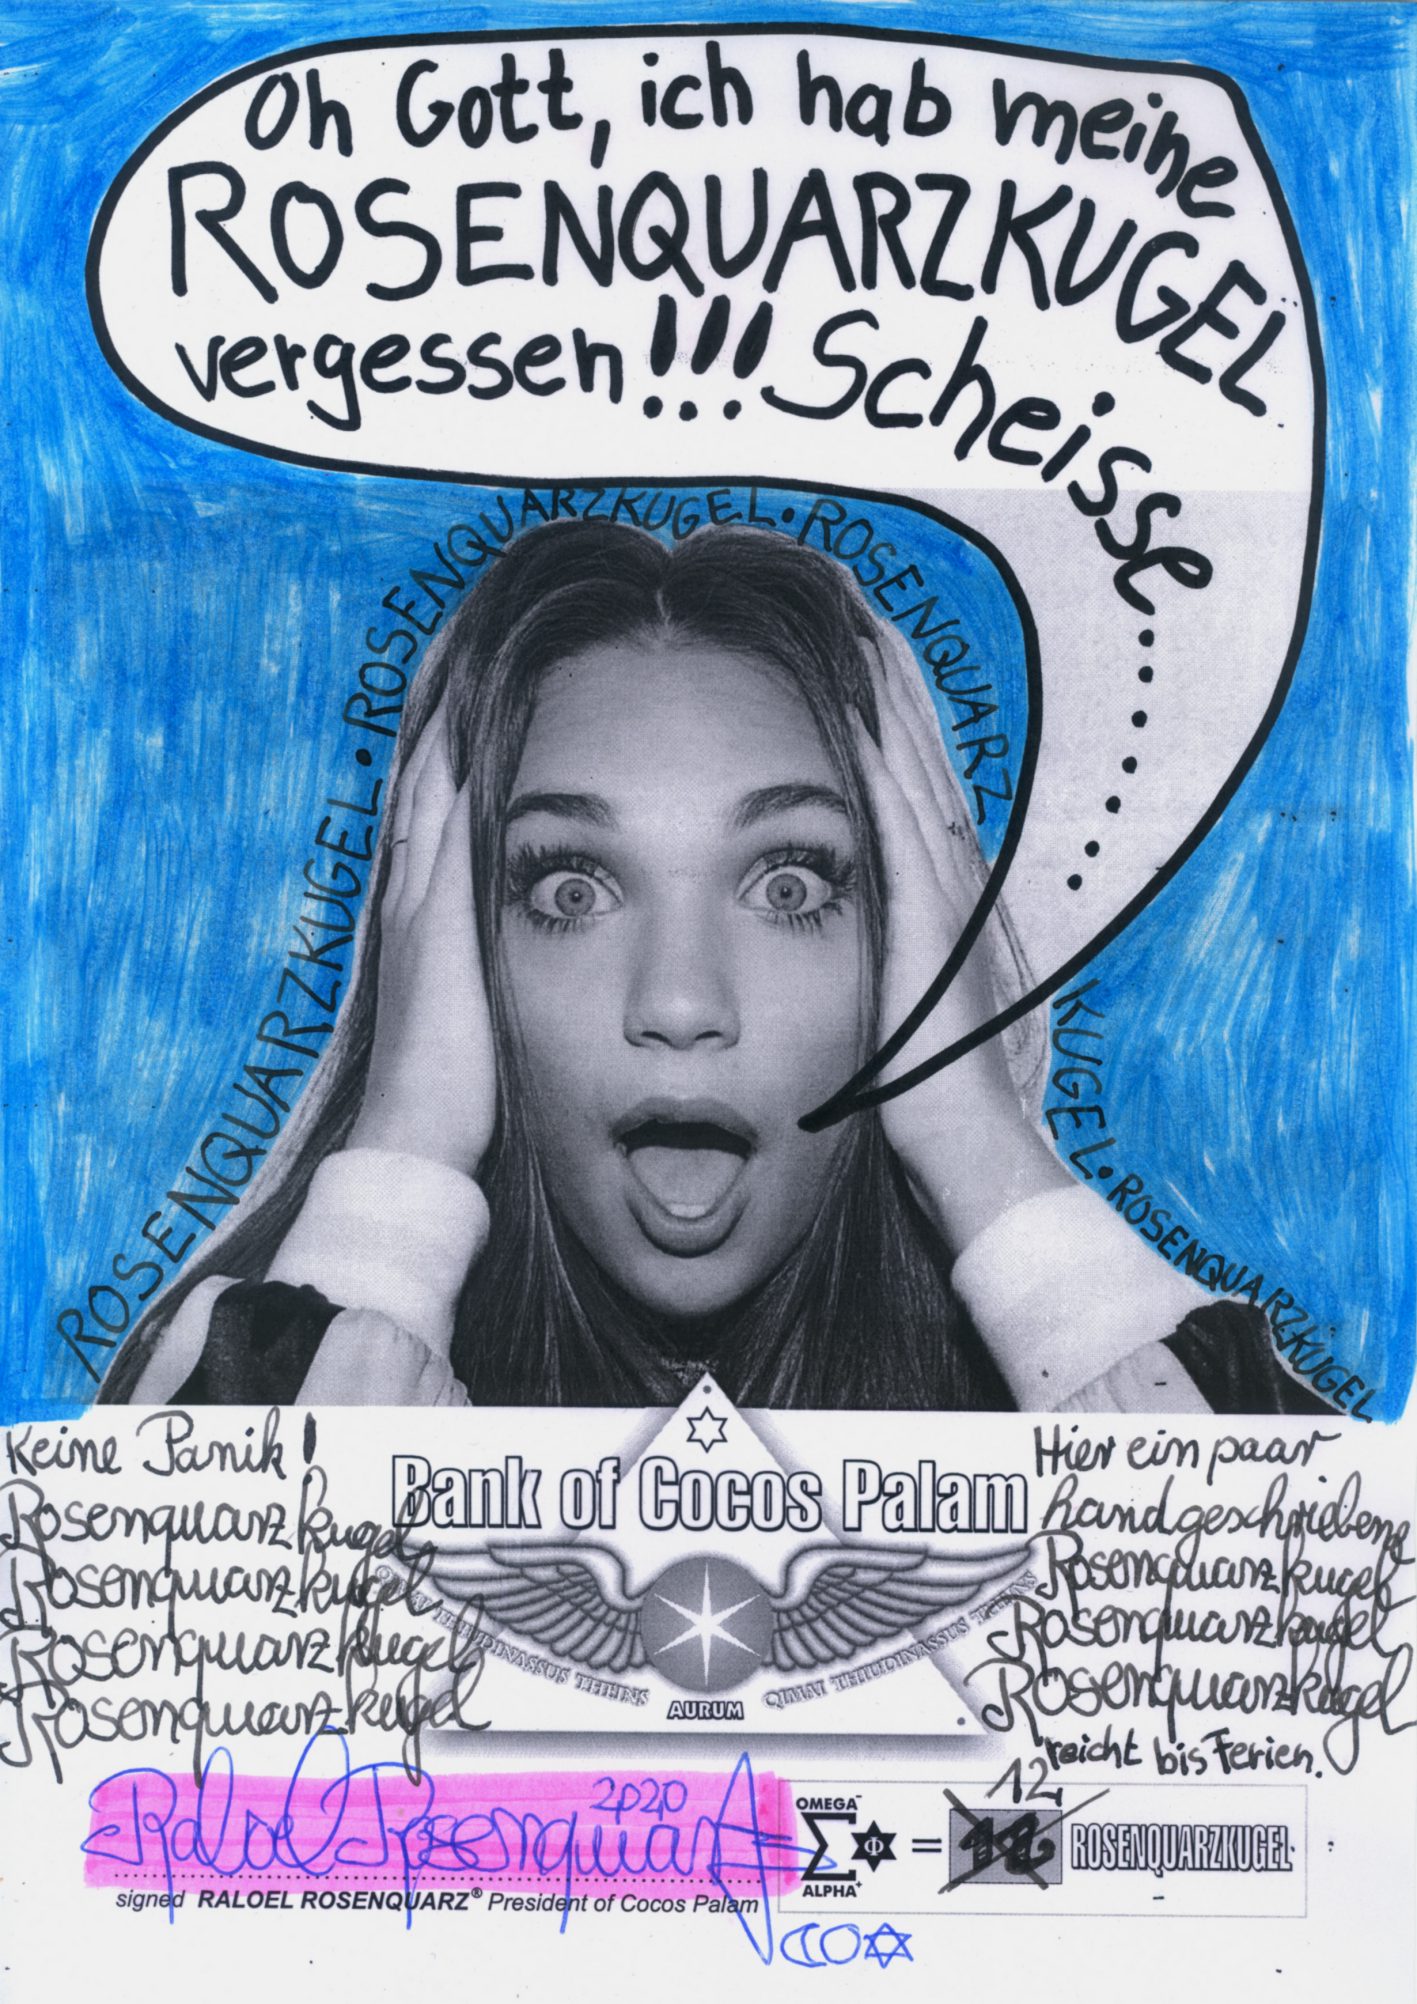 Oh Gott, ich hab meine
ROSENQUARZKUGEL
vergessen!!! Scheisse.......
ROSENQUARZKUGEL • ROSENQUARZKUGEL • ROSENQUARZ
KUGEL • ROSENQUARZKUGEL
Keine Panik!
Rosenquarzkugel
Rosenquarzkugel
Rosenquarzkugel
Rosenquarzkugel
Bank of Cocos Palam
QIMAI THIUDINASSUS THEINS
AURUM
QIMAI THIUDINASSUS THEINS
Hier ein paar
handgeschriebene
Rosenquarzkugel
Rosenquarzkugel
Rosenquarzkugel
reicht bis Ferien.
Raloel Rosenquarz
2020
signed RALOEL ROSENQUARZ® President of Cocos Palam
OMEGA⁻
Σ Φ =
ALPHA⁺
12
ROSENQUARZKUGEL